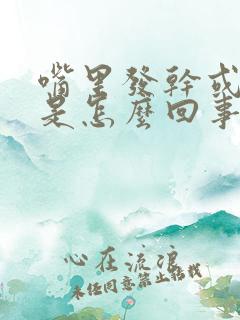 嘴里發幹或
是怎麽回事
心在流浪
未经同意禁止转载